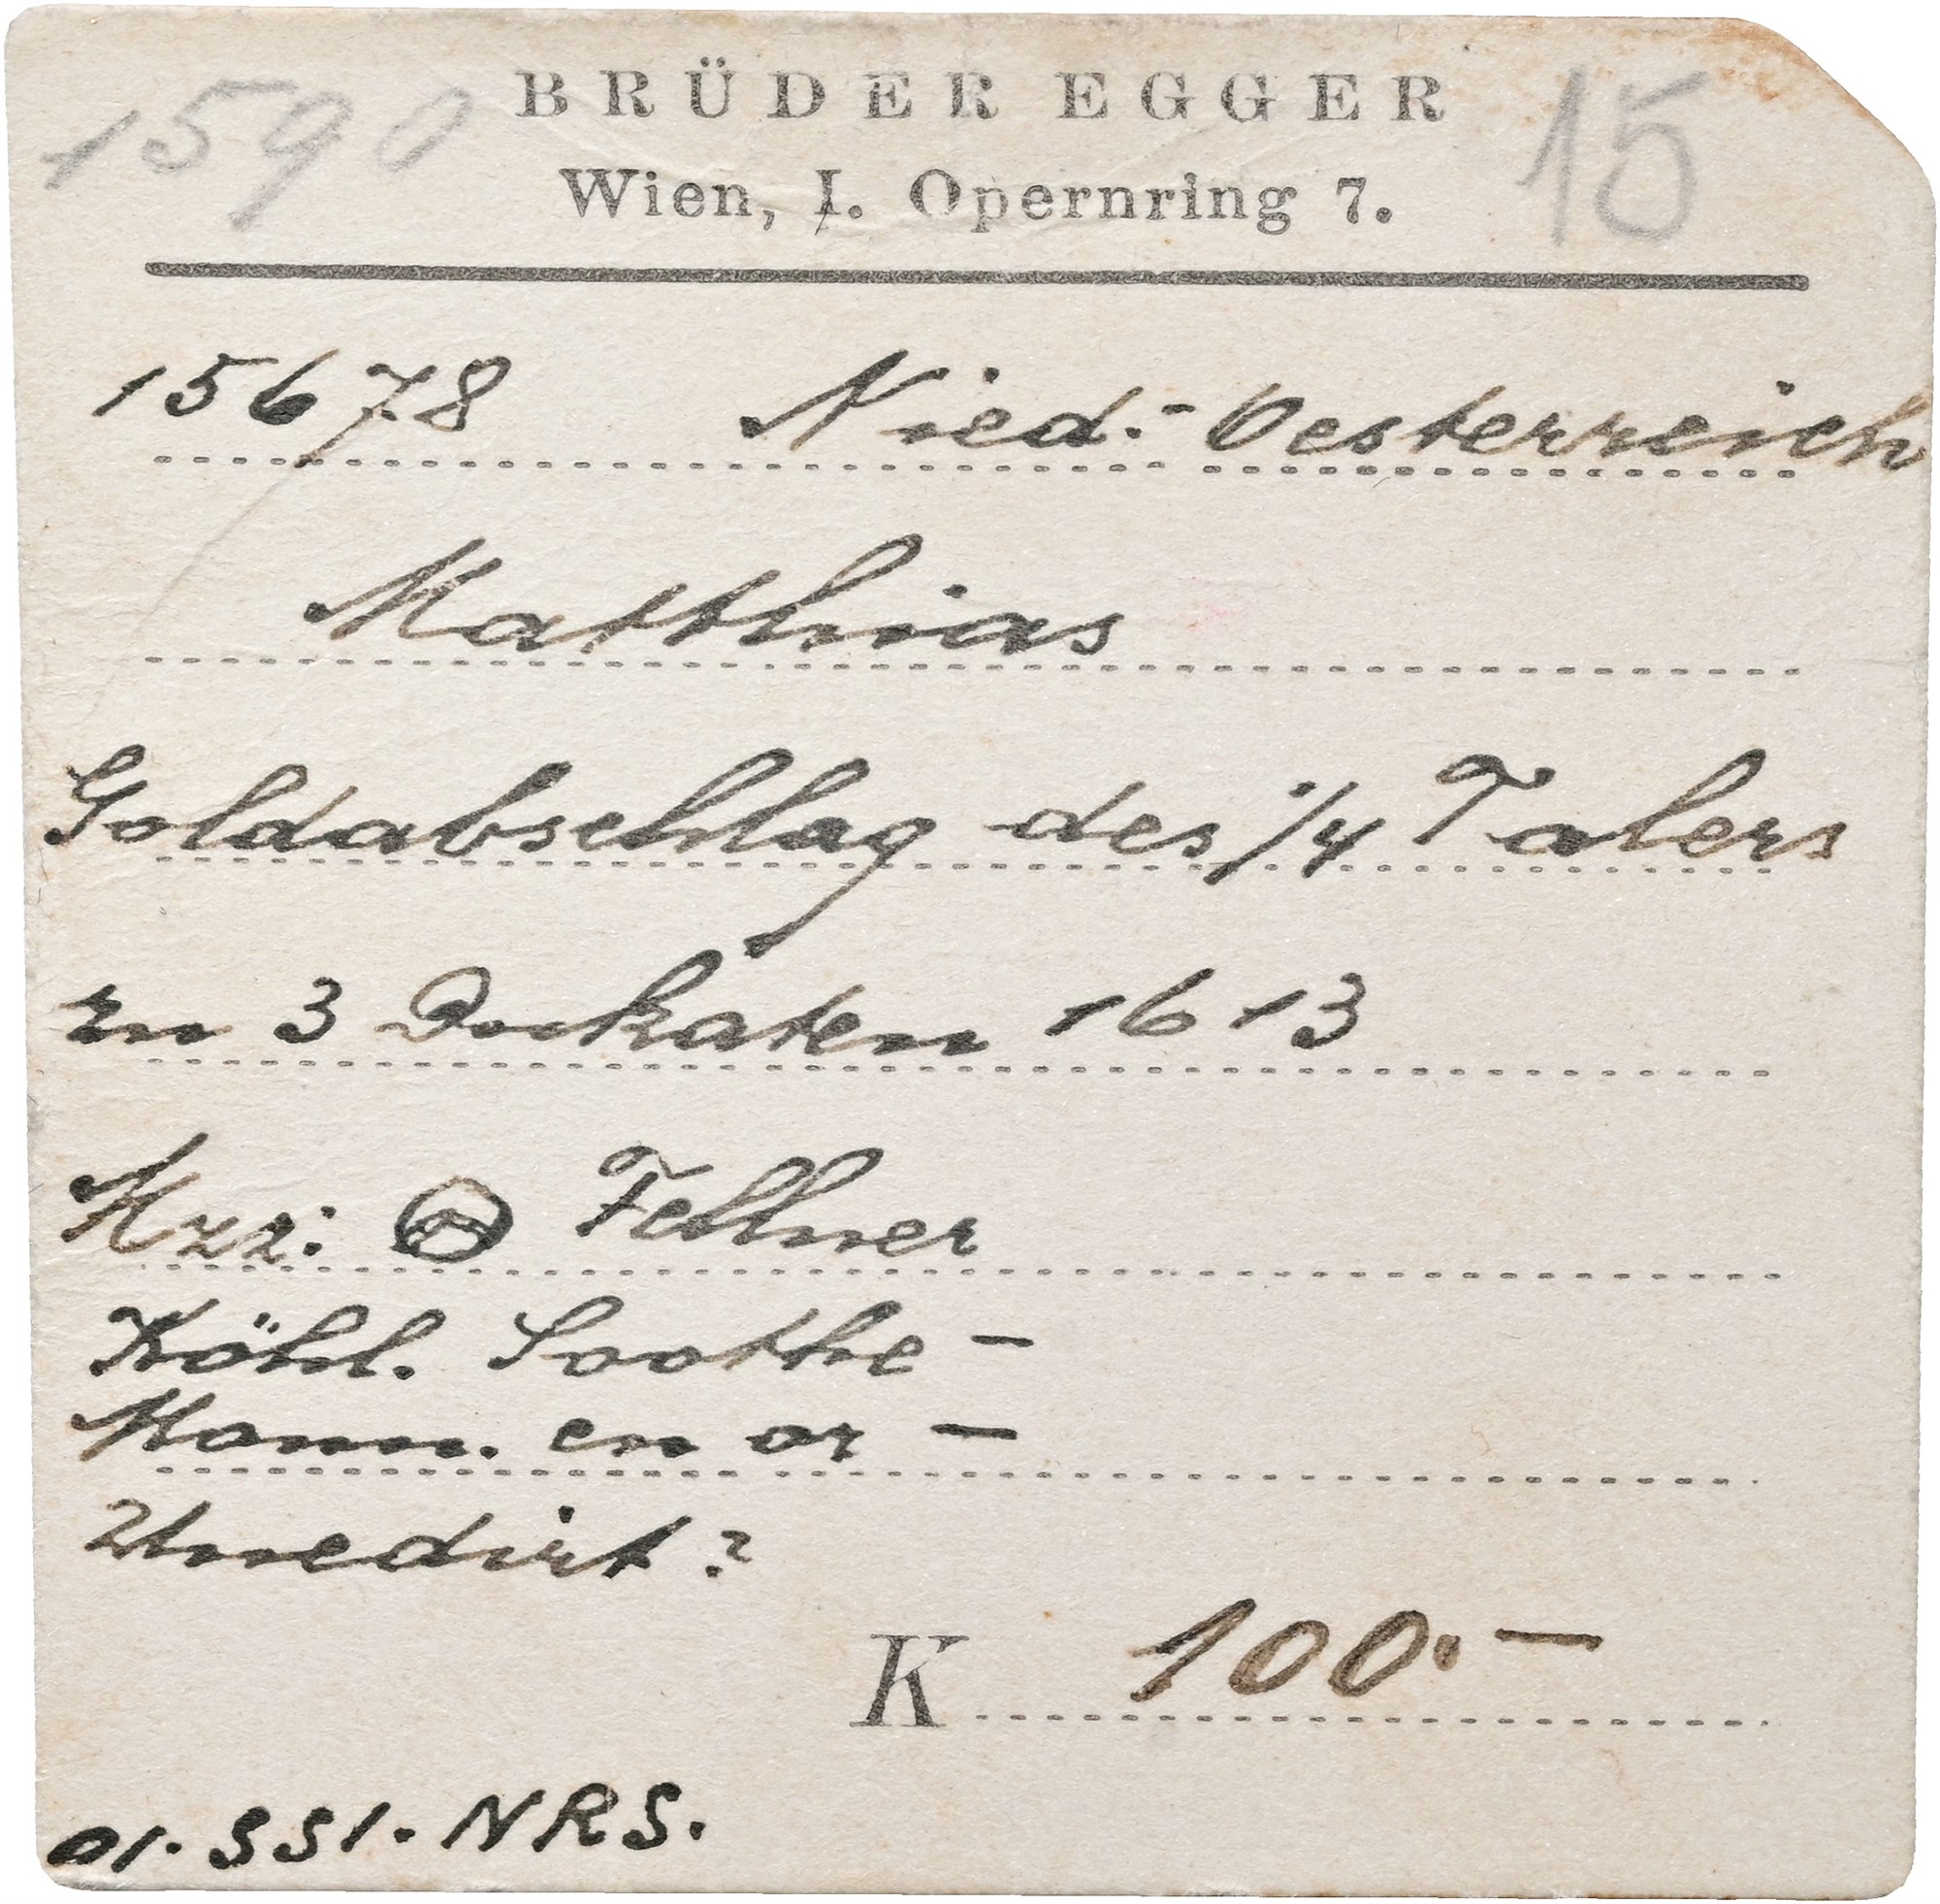 BRÜDER EGGER
1590
15
Wien, I. Opernring 7.
15678 Nied.-Oesterreich
Matthias
Goldabschlag des 1/4 Talers
zu 3 Dukaten 1613
Mzz: Fellner
Köhl. Soothe –
Monn. en or –
Unedirt?
K 100.–
01. SSI. NRS.